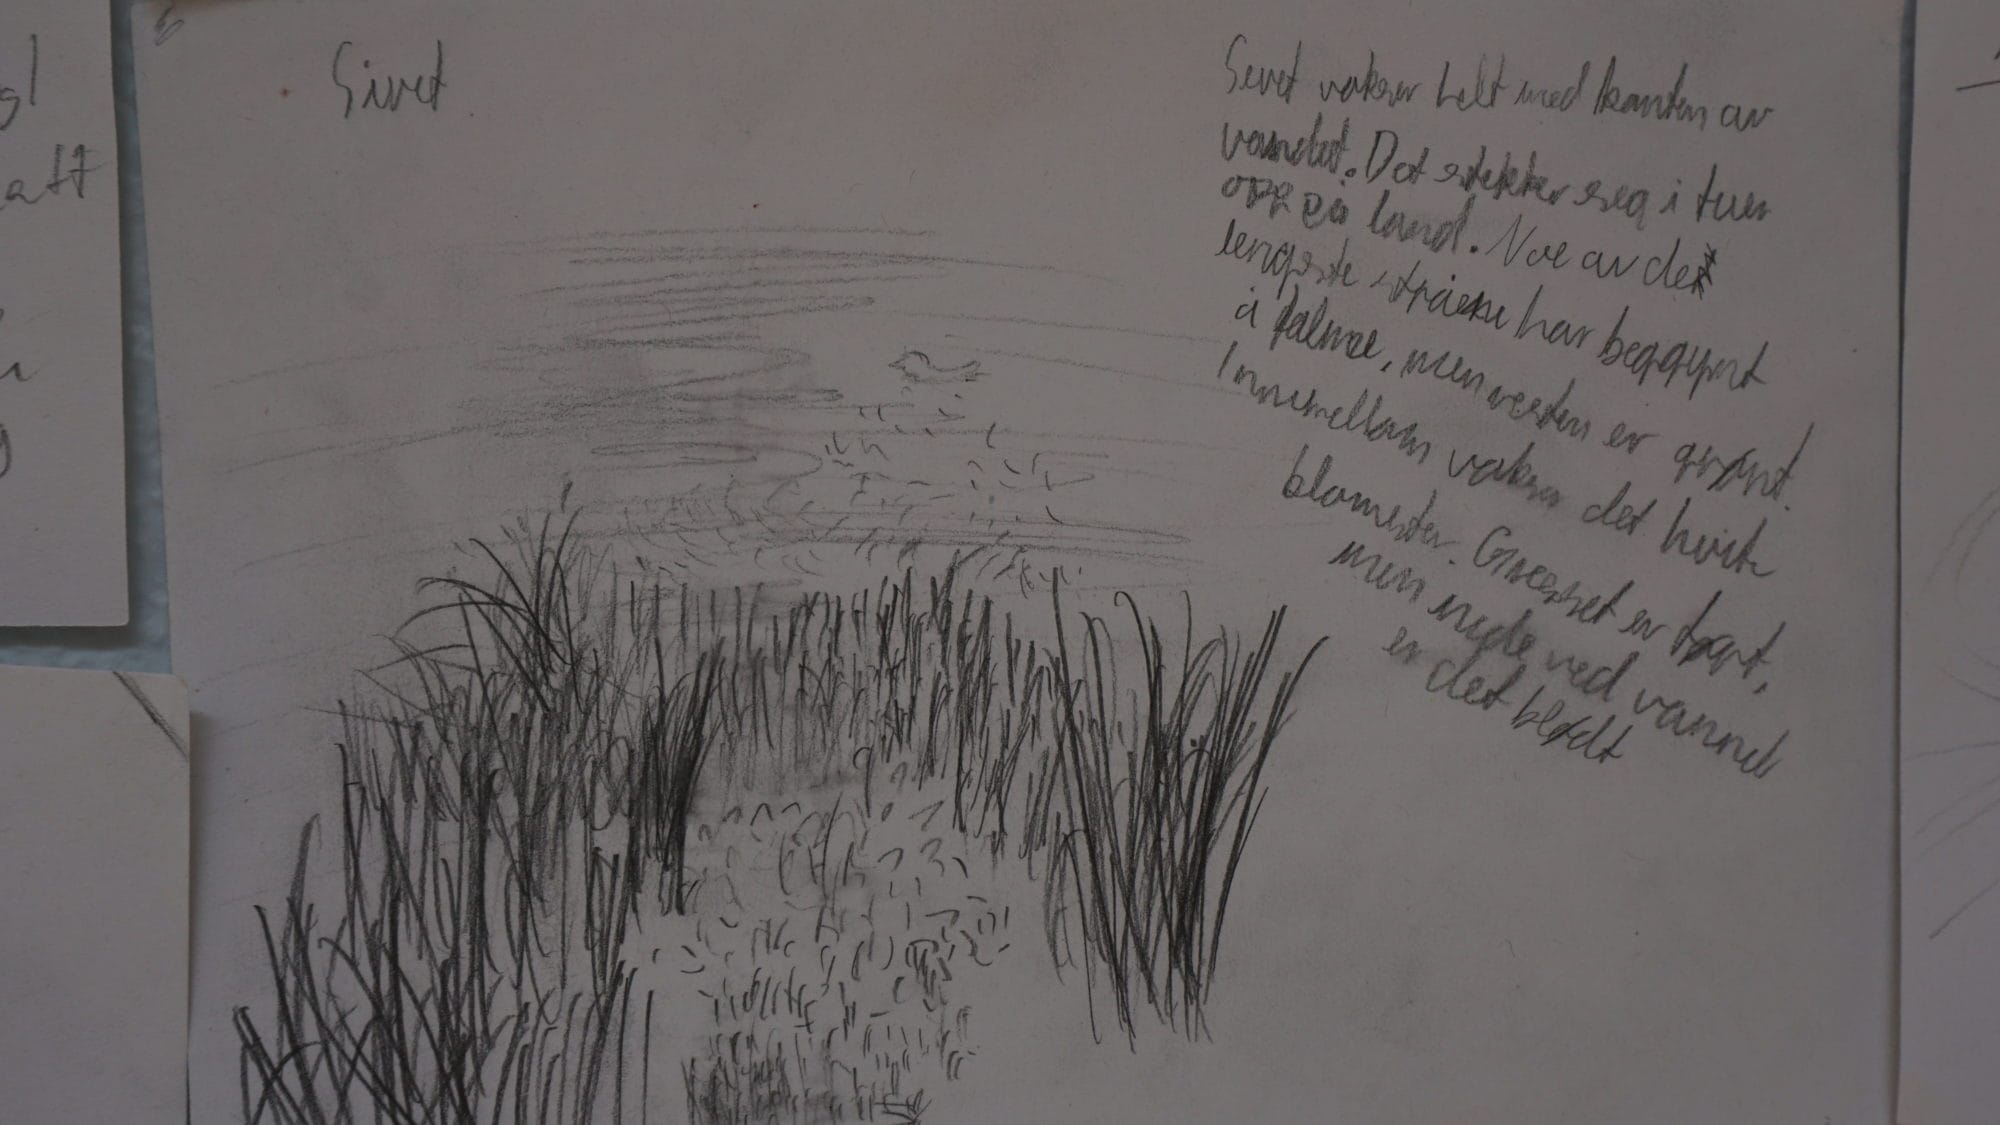 Sivet
Sevet vokser helt med kanten av
vandet. Det strekker seg i tuer
opp på land. Noe av det
lengste stråene har beggynt
å falme, men resten er grønt.
Innimellom vokser det hvite
blomster. Græsset er tørt,
men nede ved vannd
er det bløtt
att